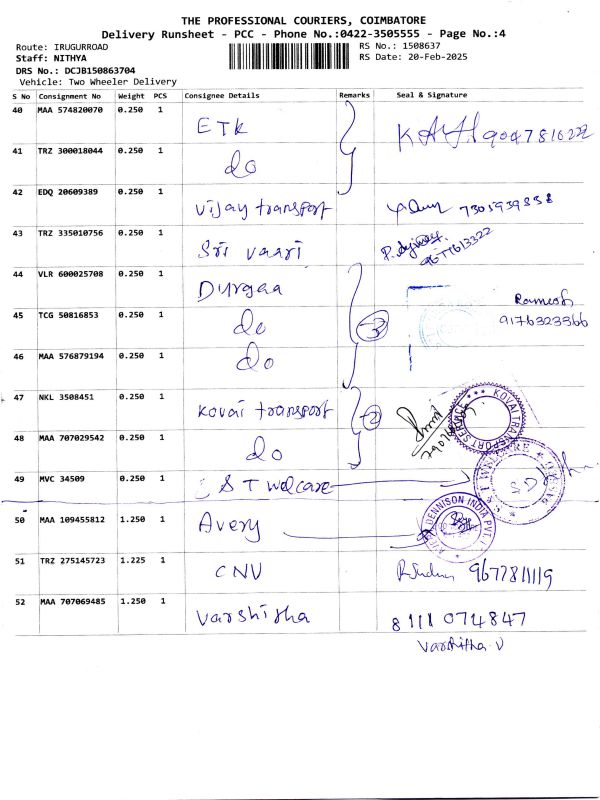 THE PROFESSIONAL COURIERS, COIMBATORE
Delivery Runsheet - PCC - Phone No.:0422-3505555 - Page No.:4
Route: IRUGURROAD
RS No.: 1508637
Staff: NITHYA
RS Date: 20-Feb-2025
DRS No.: DCJB150863704
Vehicle: Two Wheeler Delivery
S No Consignment No Weight PCS Consignee Details Remarks Seal & Signature
40 MAA 574820070 0.250 1 ETK
41 TRZ 300018044 0.250 1 do
42 EDQ 20609389 0.250 1 Vijay transport 7301939838
43 TRZ 335010756 0.250 1 Sri vaari 9677613322
44 VLR 600025708 0.250 1 Durgaa Ramesh
45 TCG 50816853 0.250 1 do 3 9176323566
46 MAA 576879194 0.250 1 do
47 NKL 3508451 0.250 1 Kovai transport 2 KOVAI TRANSPORT SERVICE
48 MAA 707029542 0.250 1 do
49 MVC 34509 0.250 1 S T welcare
50 MAA 109455812 1.250 1 Avery DENNISON INDIA PVT.
51 TRZ 275145723 1.225 1 CNV 9677811119
52 MAA 707069485 1.250 1 Varshitha 8111 074847
Varshitha V